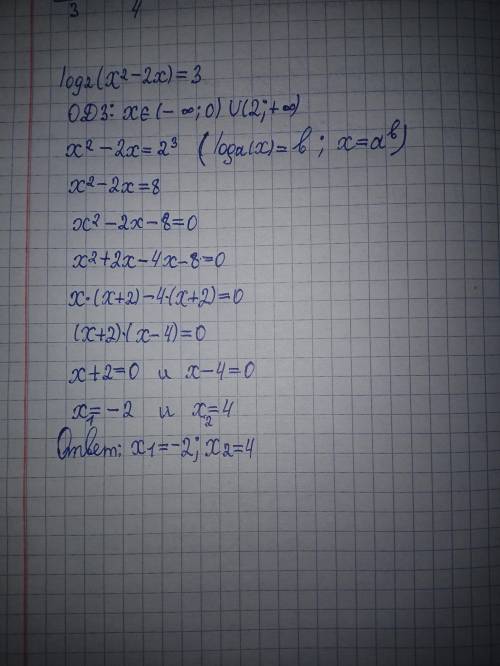 3 4
log2(x²-2x)=3
ОДЗ: x∈(-∞;0)∪(2;+∞)
x²-2x=2³ (loga(x)=b; x=aᵇ)
x²-2x=8
x²-2x-8=0
x²+2x-4x-8=0
x·(x+2)-4·(x+2)=0
(x+2)·(x-4)=0
x+2=0 и x-4=0
x₁=-2 и x₂=4
Ответ: x1=-2; x2=4